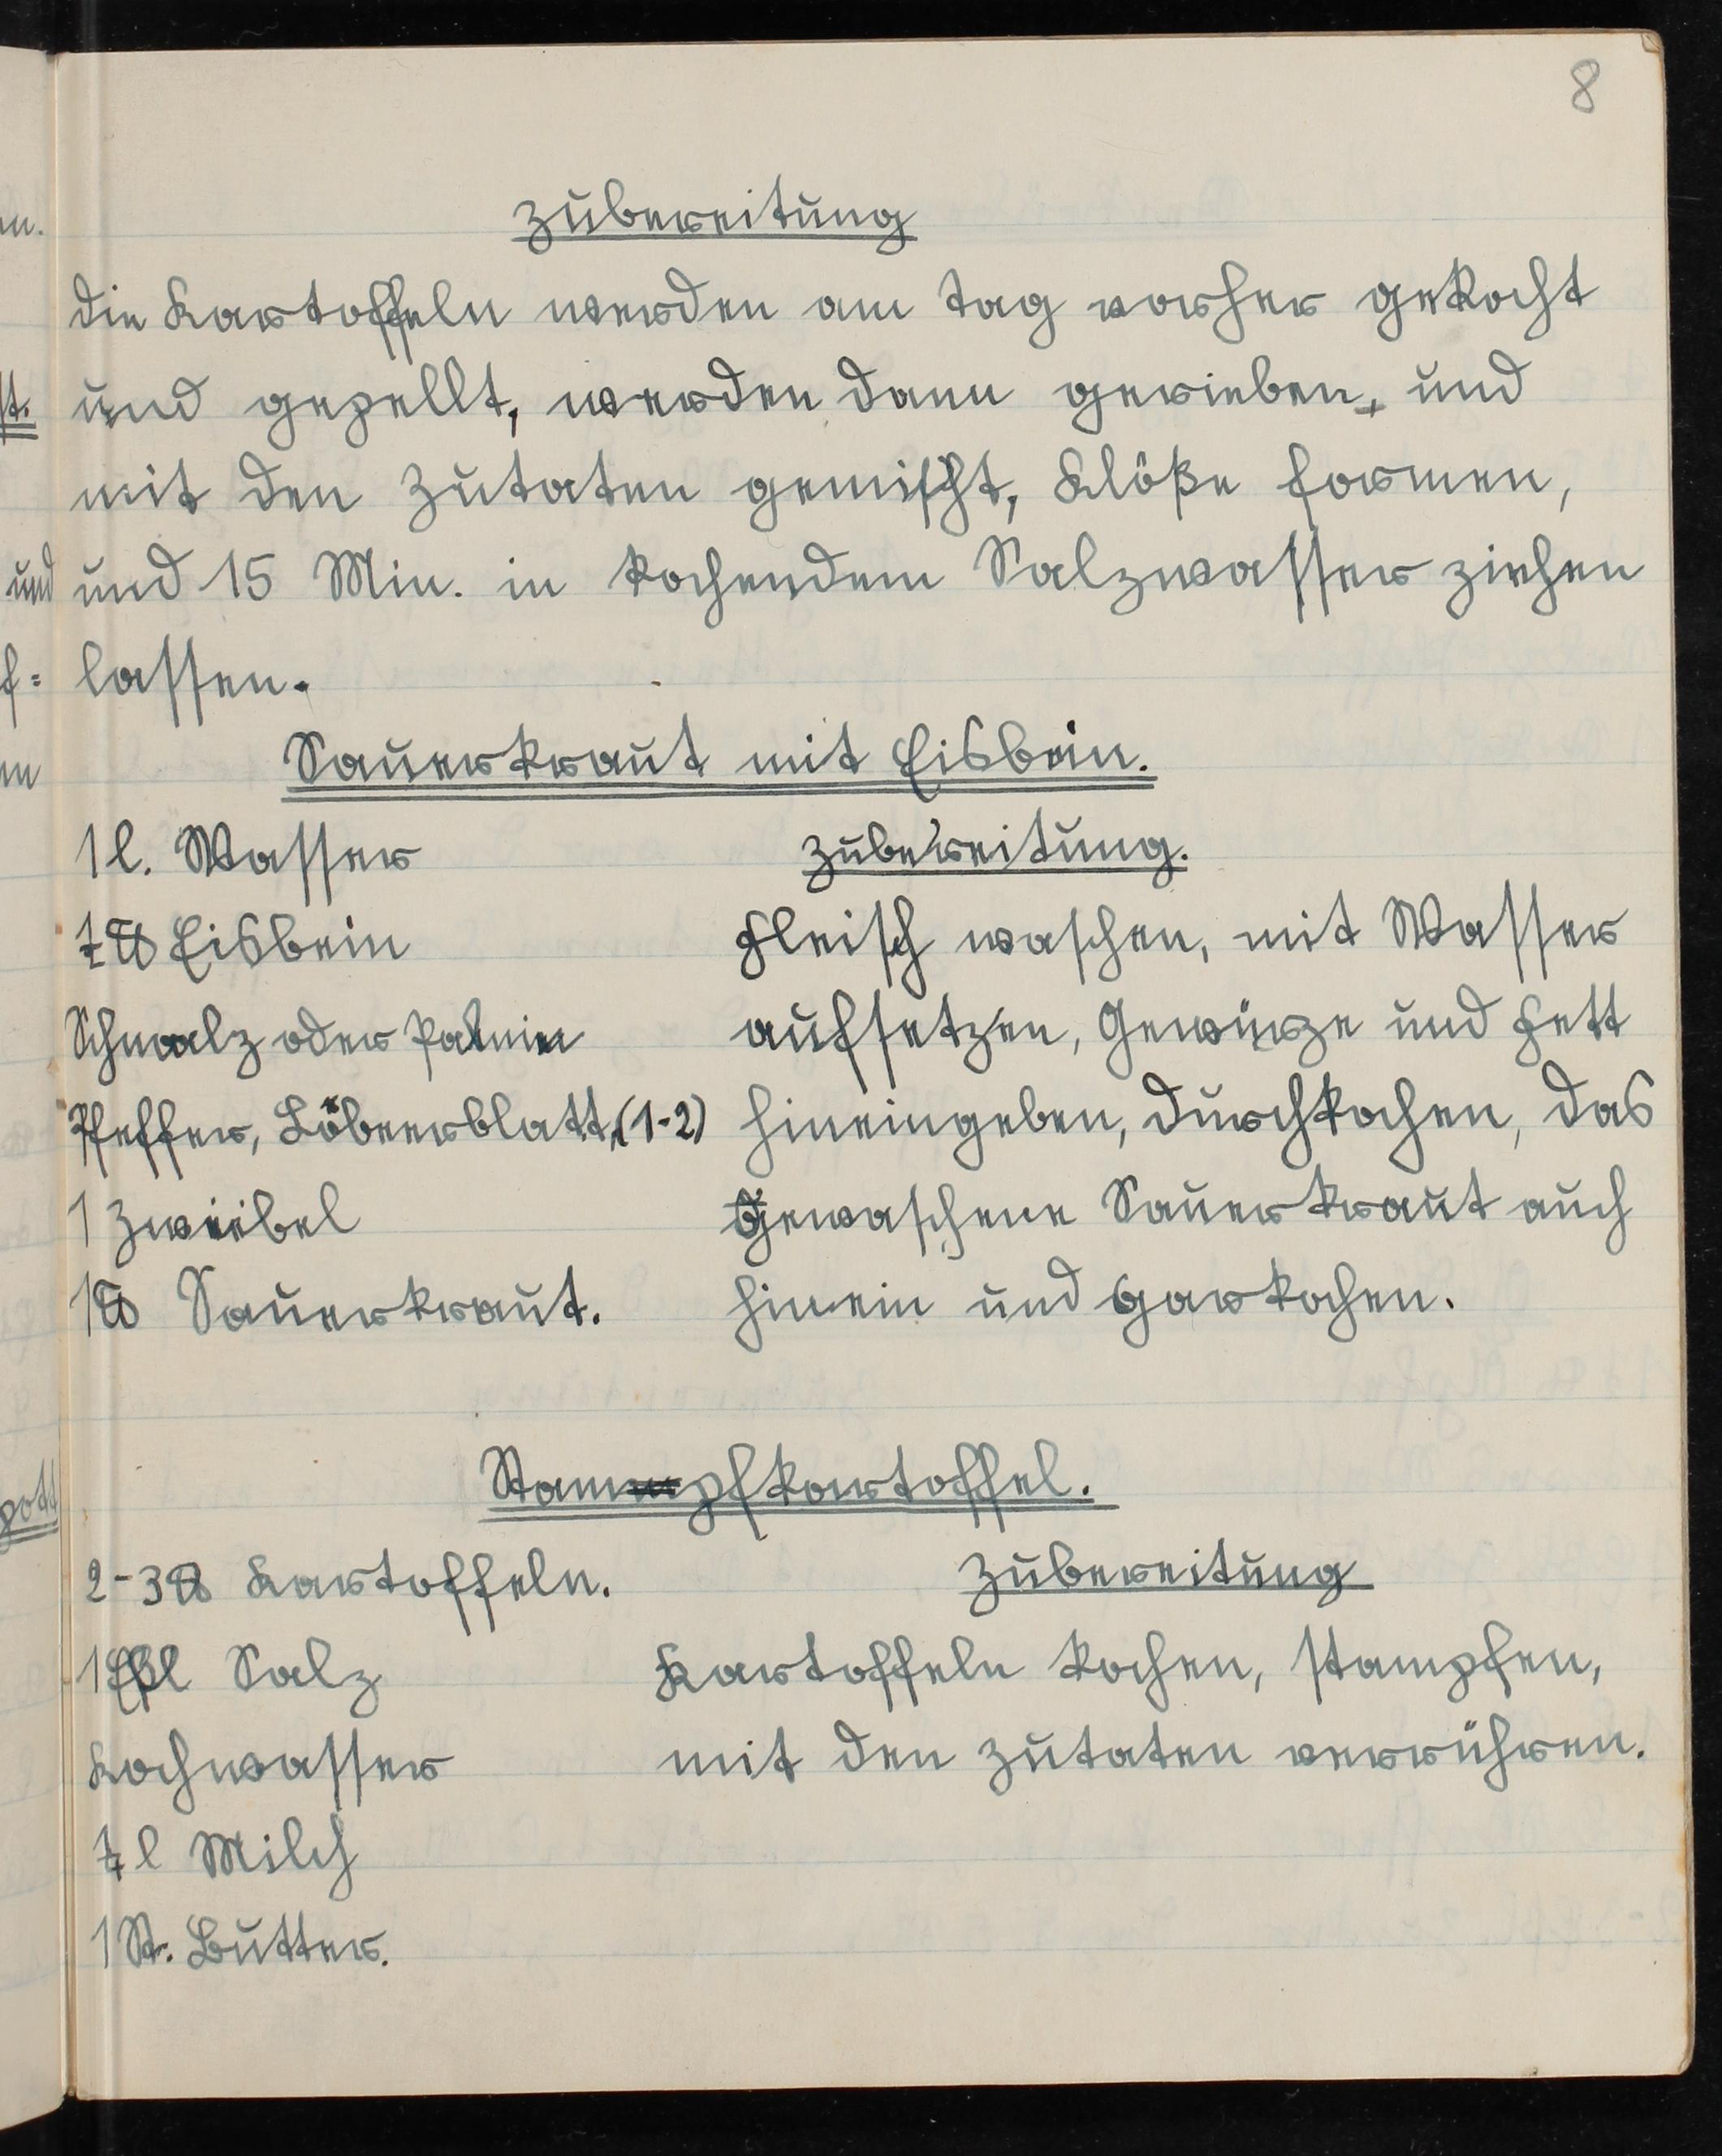 8
Zubereitung
die Kartoffeln werden am Tag vorher gekocht
und gepellt, werden dann gerieben, und
mit den Zutaten gemischt, Klöße formen,
und 15 Min. in kochendem Salzwasser ziehen
lassen.
Sauerkraut mit Eisbein.
1 l. Wasser
½ ℔ Eisbein
Schmalz oder Palmin
Pfeffer, Löbeerblatt, (1-2)
1 Zwiebel
1 ℔ Sauerkraut.
Zubereitung.
Fleisch waschen, mit Wasser
aufsetzen, Gewürze und Fett
hineingeben, durchkochen, das
gewaschene Sauerkraut auch
hinein und garkochen.
Stampfkartoffel.
2-3 ℔ Kartoffeln.
1 Eßl Salz
Kochwasser
¼ l Milch
1 St. Butter.
Zubereitung
Kartoffeln kochen, stampfen,
mit den Zutaten verrühren.